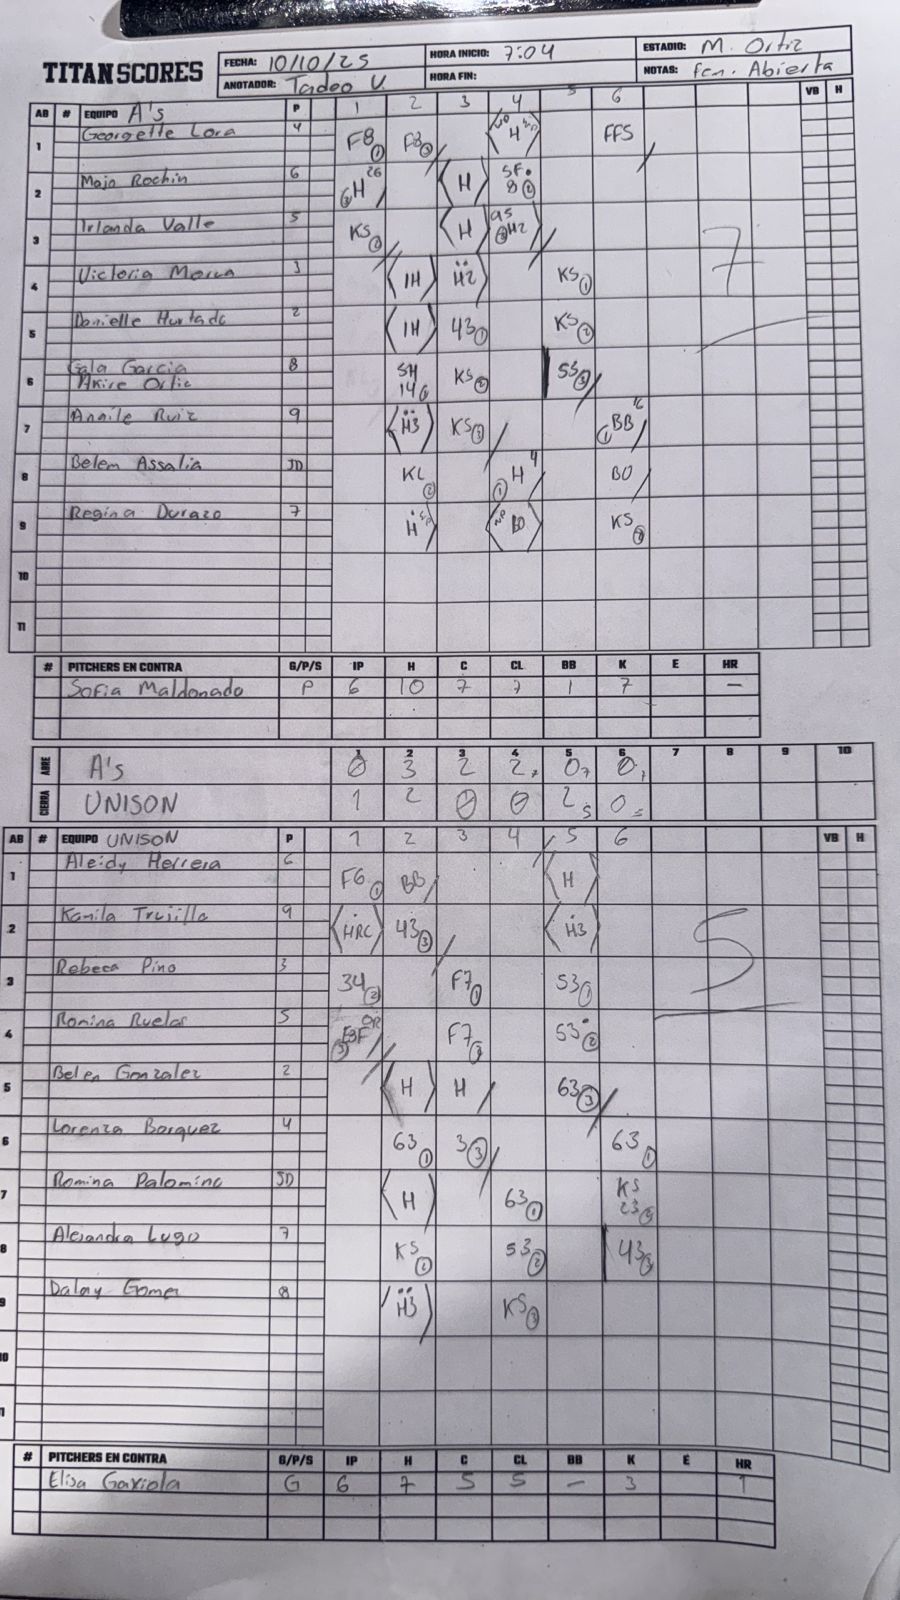 TITAN SCORES
FECHA: 10/10/25 HORA INICIO: 7:04 ESTADIO: M. Ortiz
ANOTADOR: Tadeo V. HORA FIN: NOTAS: Fem. Abierta
AB # EQUIPO A's P 1 2 3 4 5 6 VB H
1 Georgette Lora 4 F8 ① F8 ③ H FFS
2 Majo Rochin 6 H 26 H SF 8 ②
3 Irlanda Valle 5 KS ② H H2
4 Victoria 3 IH H2 KS ① 7
5 Danielle Hurtado 2 IH 43 ① KS ②
6 Gala Garcia 8 SH 14 KS ② 53 ③
Akire Ortiz
7 Ruiz 9 H3 KS ③ ① BB 16
8 Belem Assalia JD KL ② ① H 4 BO
9 Regina Durazo 7 H BO KS
10
11
# PITCHERS EN CONTRA G/P/S IP H C CL BB K E HR
Sofia Maldonado P 6 10 7 7 1 7 —
ABRE A's 1 0 2 3 3 2 4 2 5 0 6 0 7 8 9 10
CIERRA UNISON 1 2 0 0 2 5 0
AB # EQUIPO UNISON P 1 2 3 4 5 6 VB H
1 Aleidy Herrera 6 F6 ① BB H
2 Kamila Trujillo 9 HRC 43 ③ H3 5
3 Rebeca Pino 3 34 ② F7 ① 53 ①
4 Romina Ruelas 5 F7 ② 53 ②
5 Belen Gonzalez 2 H H 63 ③
6 Lorenza Borquez 4 63 ① 3 ③ 63 ①
7 Romina Palomino JD H 63 ① KS 23 ②
8 Alejandra Lugo 7 KS ② 53 ② 43 ③
9 Dalay Gomez 8 H3 KS ③
10
11
# PITCHERS EN CONTRA G/P/S IP H C CL BB K E HR
Elisa Gaxiola G 6 7 5 5 — 3 1